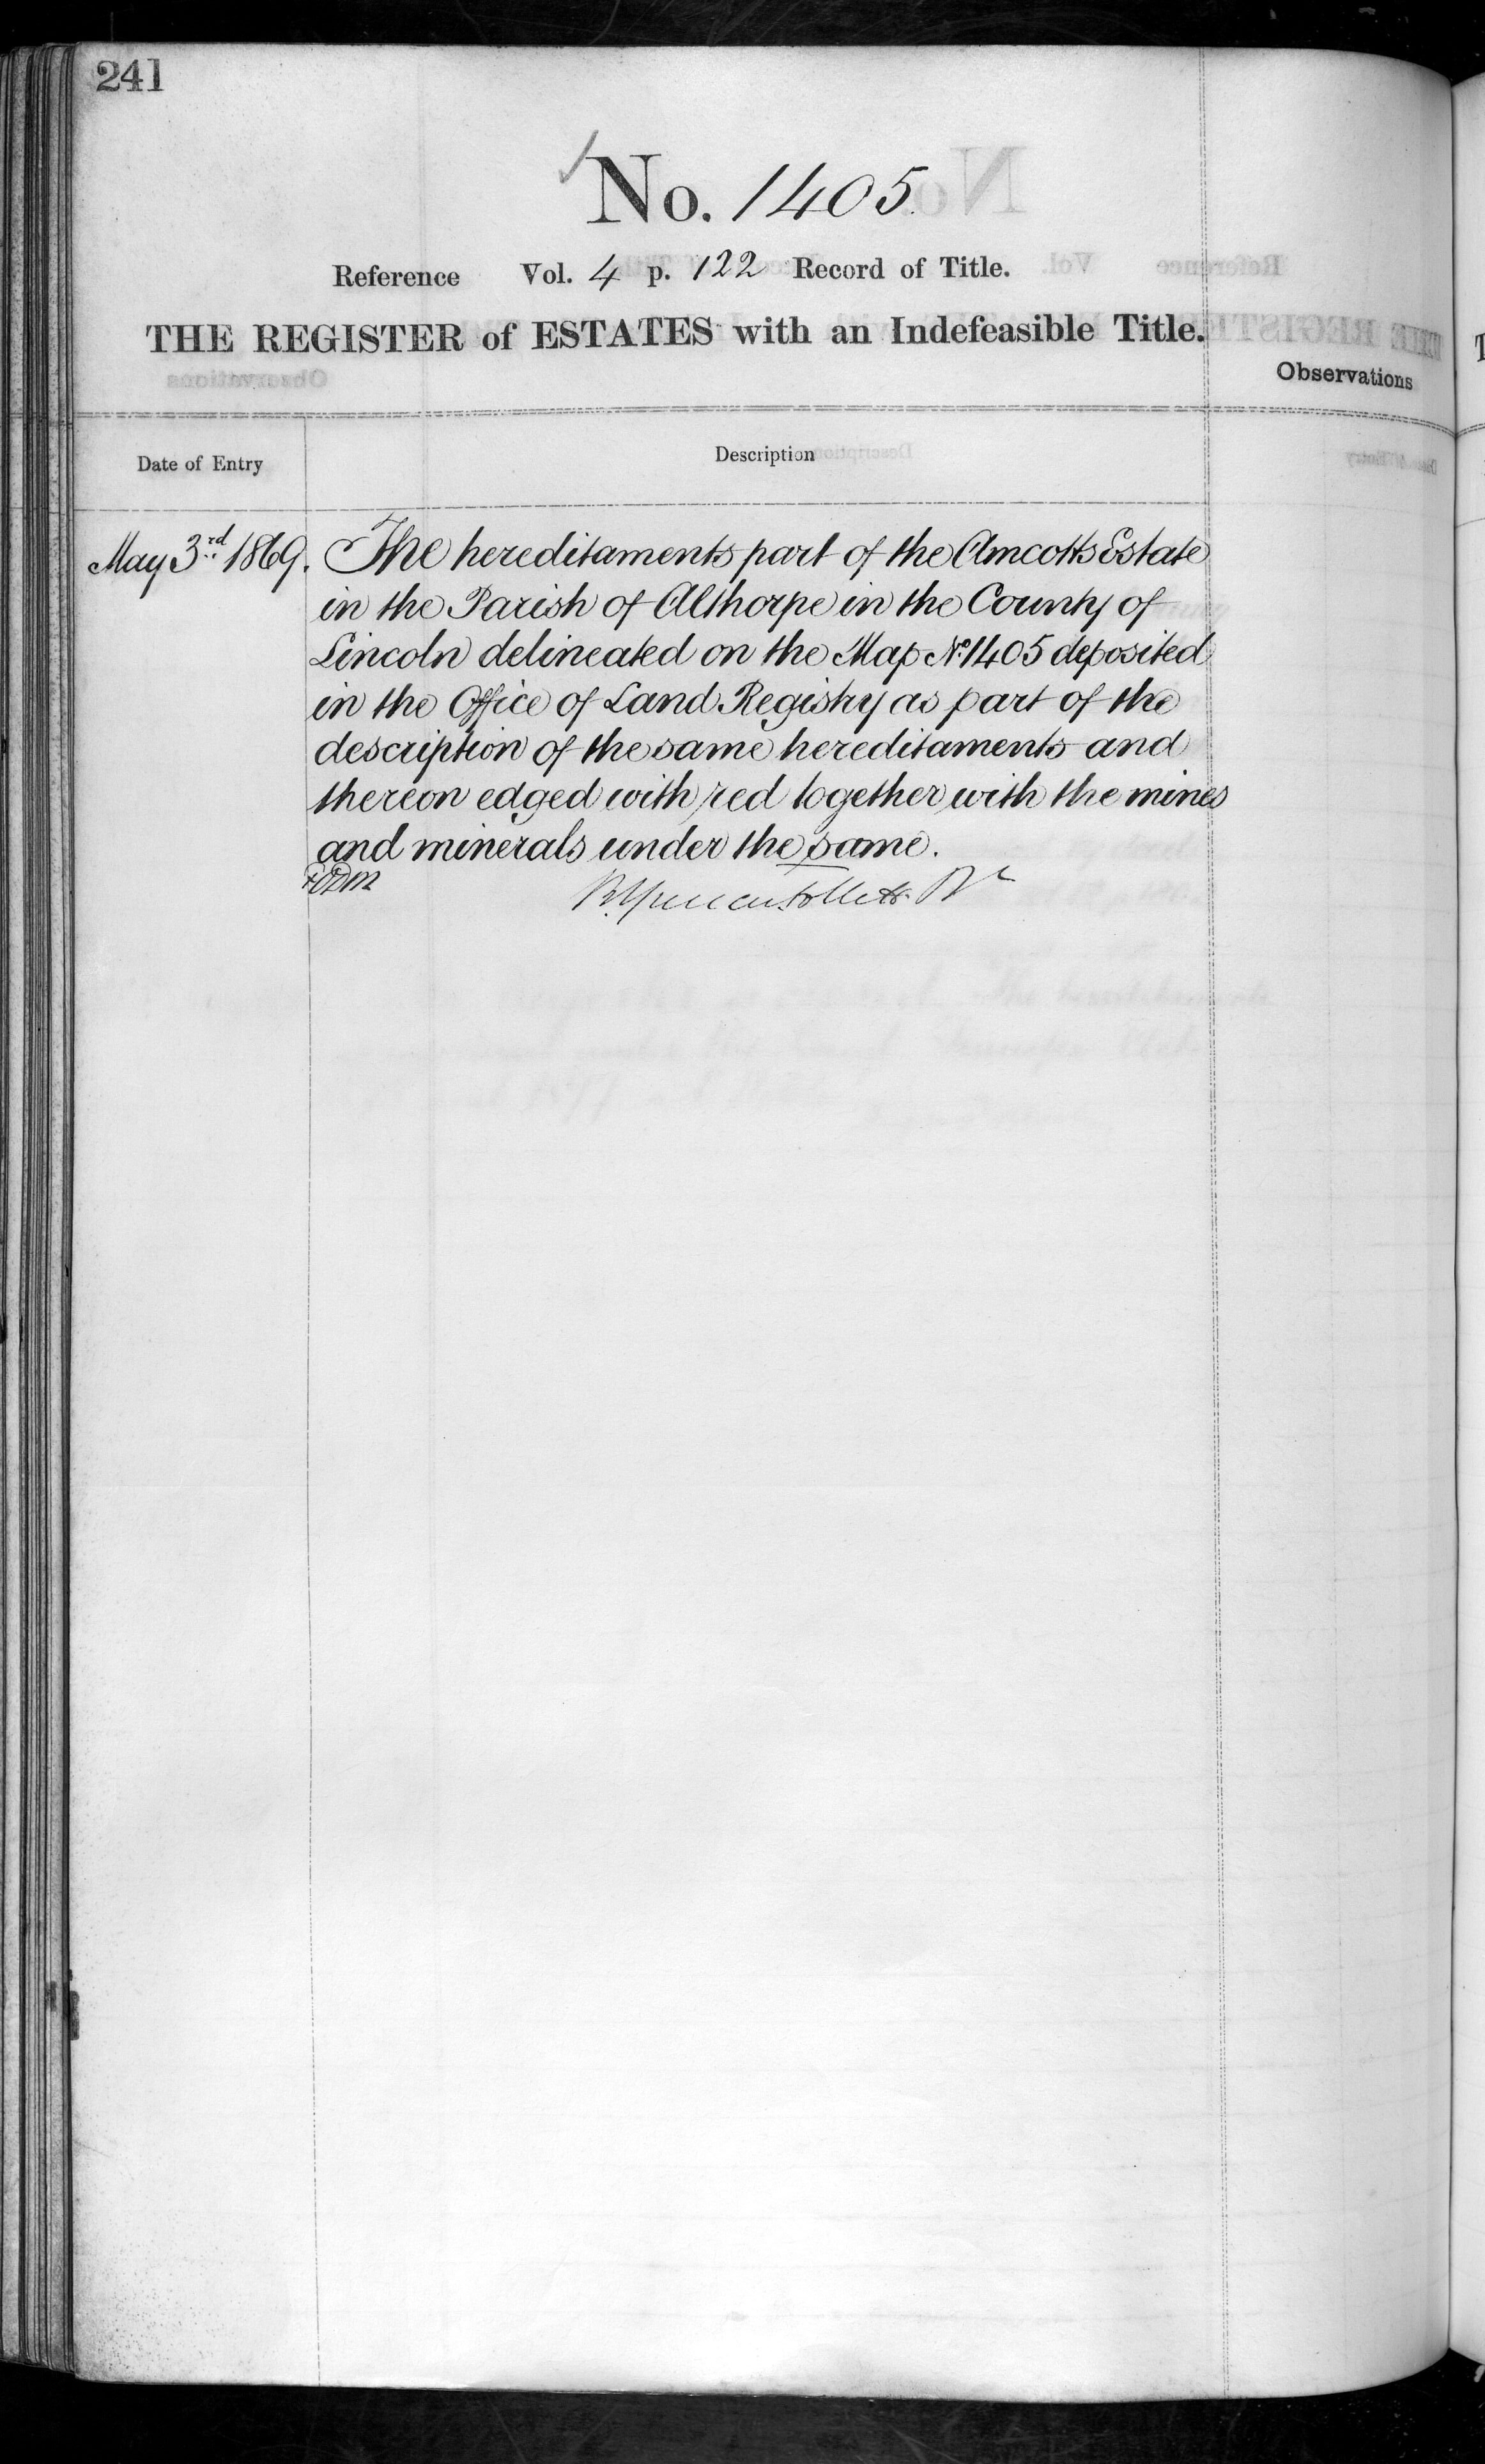 241
No. 1405.
Reference Vol. 4 p. 122 Record of Title.
THE REGISTER of ESTATES with an Indefeasible Title.
Observations
Date of Entry
Description
May 3rd 1869. The hereditaments part of the Amcotts Estate
in the Parish of Althorpe in the County of
Lincoln delineated on the Map No. 1405 deposited
in the Office of Land Registry as part of the
description of the same hereditaments and
thereon edged with red together with the mines
and minerals under the same.